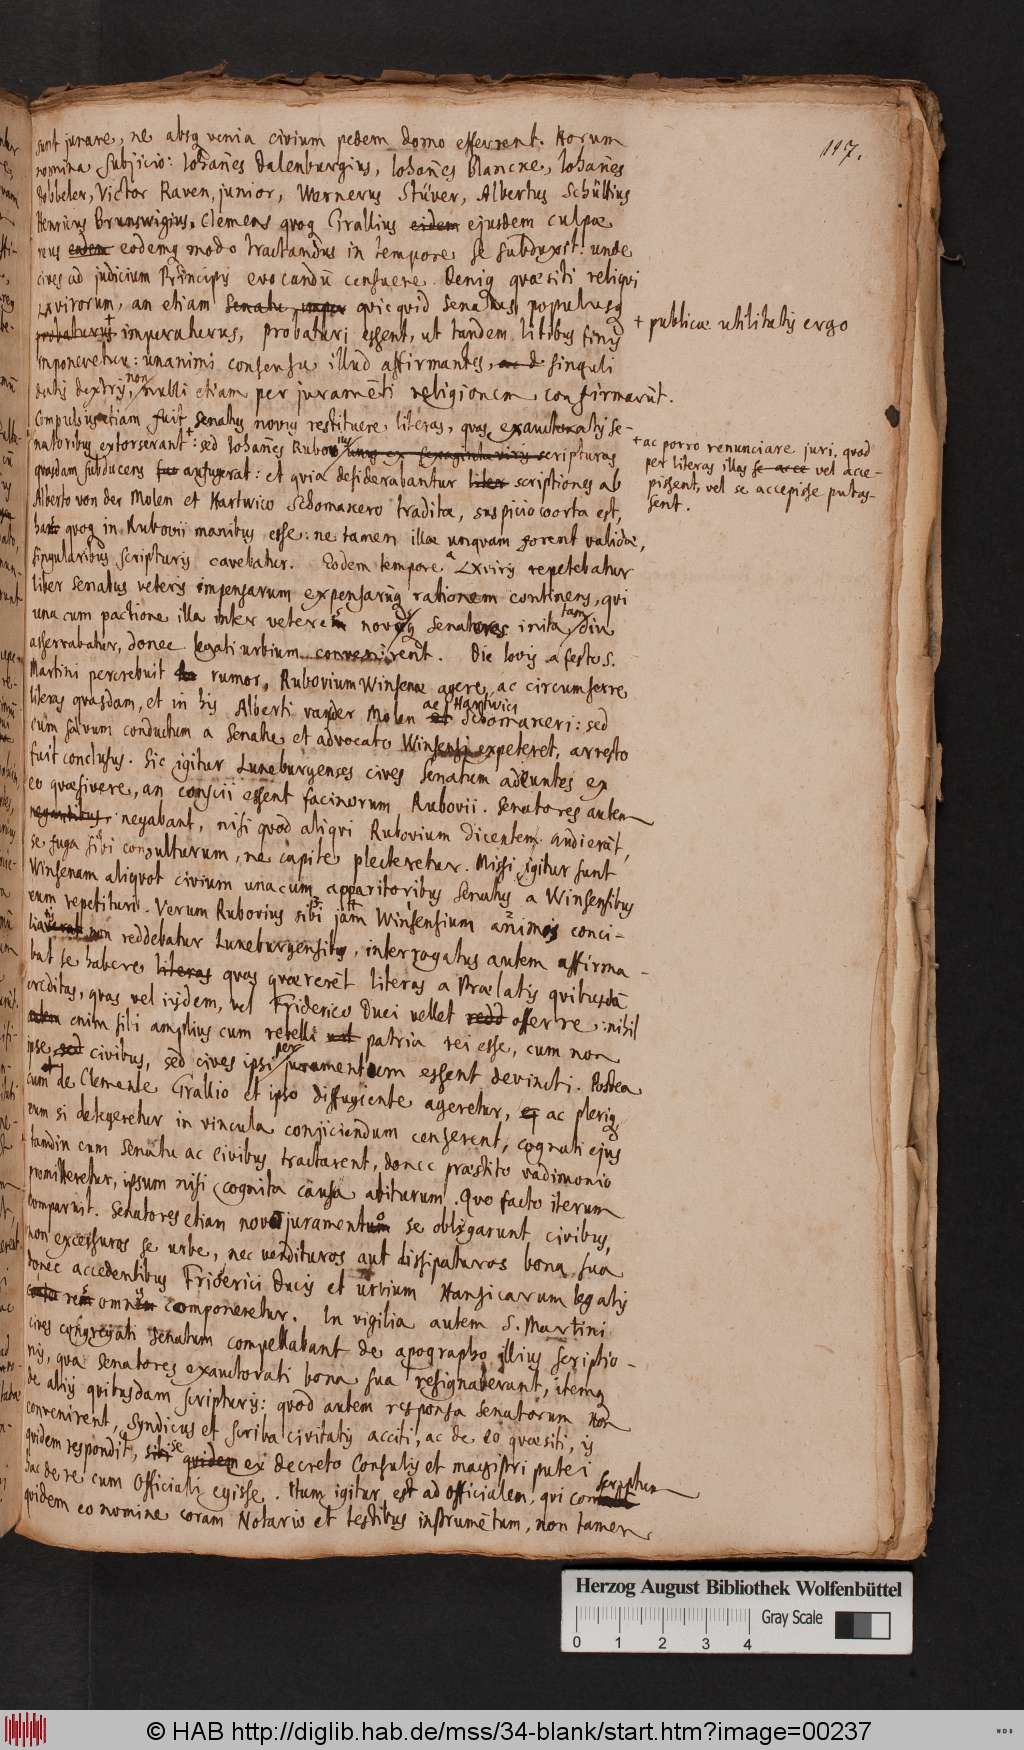 117.
sunt jurare, ne absq venia civium pedem domo efferrent. Horum
nomina subjicio: Iohañes Dalenburgius, Iohañes Blancke, Iohañes
Dobbeler, Victor Raven junior, Wernerus Stüver, Albertus Schüllius
Henricus Brunswigius. Clemens quoq Grallius eidem ejusdem culpæ
reus eadem eodemq modo tractandus in tempore se subduxit: unde
cives ad judicium Principis evocandū censuere. Deniq quæsiti reliqvi
LXvirorum, an etiam Senatu, quicquid Senatus populusq
probaturus + imperaturus, probaturi essent, ut tandem litibus finis
+ publicæ utilitatis ergo
imponeretur: unanimi consensu illud affirmantes, ac d singuli
datis dextris, non nulli etiam per juramēti religionem confirmarūt.
Compulsus etiam fuit Senatus novus restituere literas, quas exauctoratis se-
natoribus extorserant +: sed Iohañes Rubovius unus ex sexaginta viris scripturas
+ ac porro renunciare juri, quod
per literas illas se acce vel acce-
pissent, vel se accepisse putas-
sent.
quasdam subducens fuc aufugerat: et quia desiderabantur liter scriptiones ab
Alberto von der Molen et Hartwico Schomakero traditæ, suspicio oorta est,
has quoq in Rubovii manibus esse: ne tamen illæ unquam forent validæ,
singularibus scripturis cavebatur. Eodem tempore a LXviris repetebatur
liber Senatus veteris impensarum expensarūq rationem continens, qui
una cum pactione illa inter veterem novosq Senatores inita tam diu
asservabatur, donec legati urbium convenirent. Die Iovis a festo S.
Martini percrebuit rumor, Rubovium Winsenæ agere, ac circumferre
literas quasdam, et in his Alberti vander Molen et ac Hartwici Schomakeri: sed
cum salvum conductum a Senatu et advocato Winsensi expeteret, arresto
fuit conclusus. Sic igitur Luneburgenses cives Senatum adeuntes ex
eo quæsivere, an conscii essent facinorum Rubovii. Senatores autem
negantibus negabant, nisi quod aliqvi Rubovium dicentem audierāt,
se fuga sibi consulturum, ne capite plecteretur. Missi igitur sunt
Winsenam aliquot civium una cum apparitoribus Senatus a Winsensibus
eum repetituri. Verum Rubovius sibi jam Winsensium animos conci-
liaverat non reddebatur Luneburgensibus, interrogatus autem affirma-
bat se habere literas quas quærerēt literas a Prælatis quibusdā
creditas, quas vel iisdem, vel Friderico Duci vellet redd offerre: nihil
autem enim sibi amplius cum rebelli patria rei esse, cum non
ipse sed civibus, sed cives ipsi per juramentum essent devincti. Postea
cum de Clemente Grallio et ipso diffugiente ageretur, et ac pleriq
eum si detegeretur in vincula conjiciendum censerent, cognati ejus
tamdiu cum Senatu ac civibus tractarent, donec præstito vadimonio
promitteretur, ipsum nisi cognita causa abiturum. Quo facto iterum
comparuit. Senatores etiam novo juramento se obligarunt civibus,
non excessuros se urbe, nec vendituros aut dissipaturos bona sua
donec accedentibus Friderici Ducis et urbium Hansicarum legatis
res omnis componeretur. In vigilia autem S. Martini
cives congregati Senatum compellabant de apographo illius scriptio-
nis, qua Senatores exauctorati bona sua resignaverunt, itemq
de aliis quibusdam scripturis: quod autem responsa Senatorum non
convenirent, Syndicus et scriba civitatis acciti, ac de eo quæsiti, is
quidem respondit, sibi se quidem ex decreto Consulis et magistri putei
hac de re cum Officiali egisse. Itum igitur est ad officialem, qui conscriptum
quidem eo nomine coram Notario et testibus instrumētum, non tamen
Herzog August Bibliothek Wolfenbüttel
Gray Scale
0 1 2 3 4
© HAB http://diglib.hab.de/mss/34-blank/start.htm?image=00237
WDB